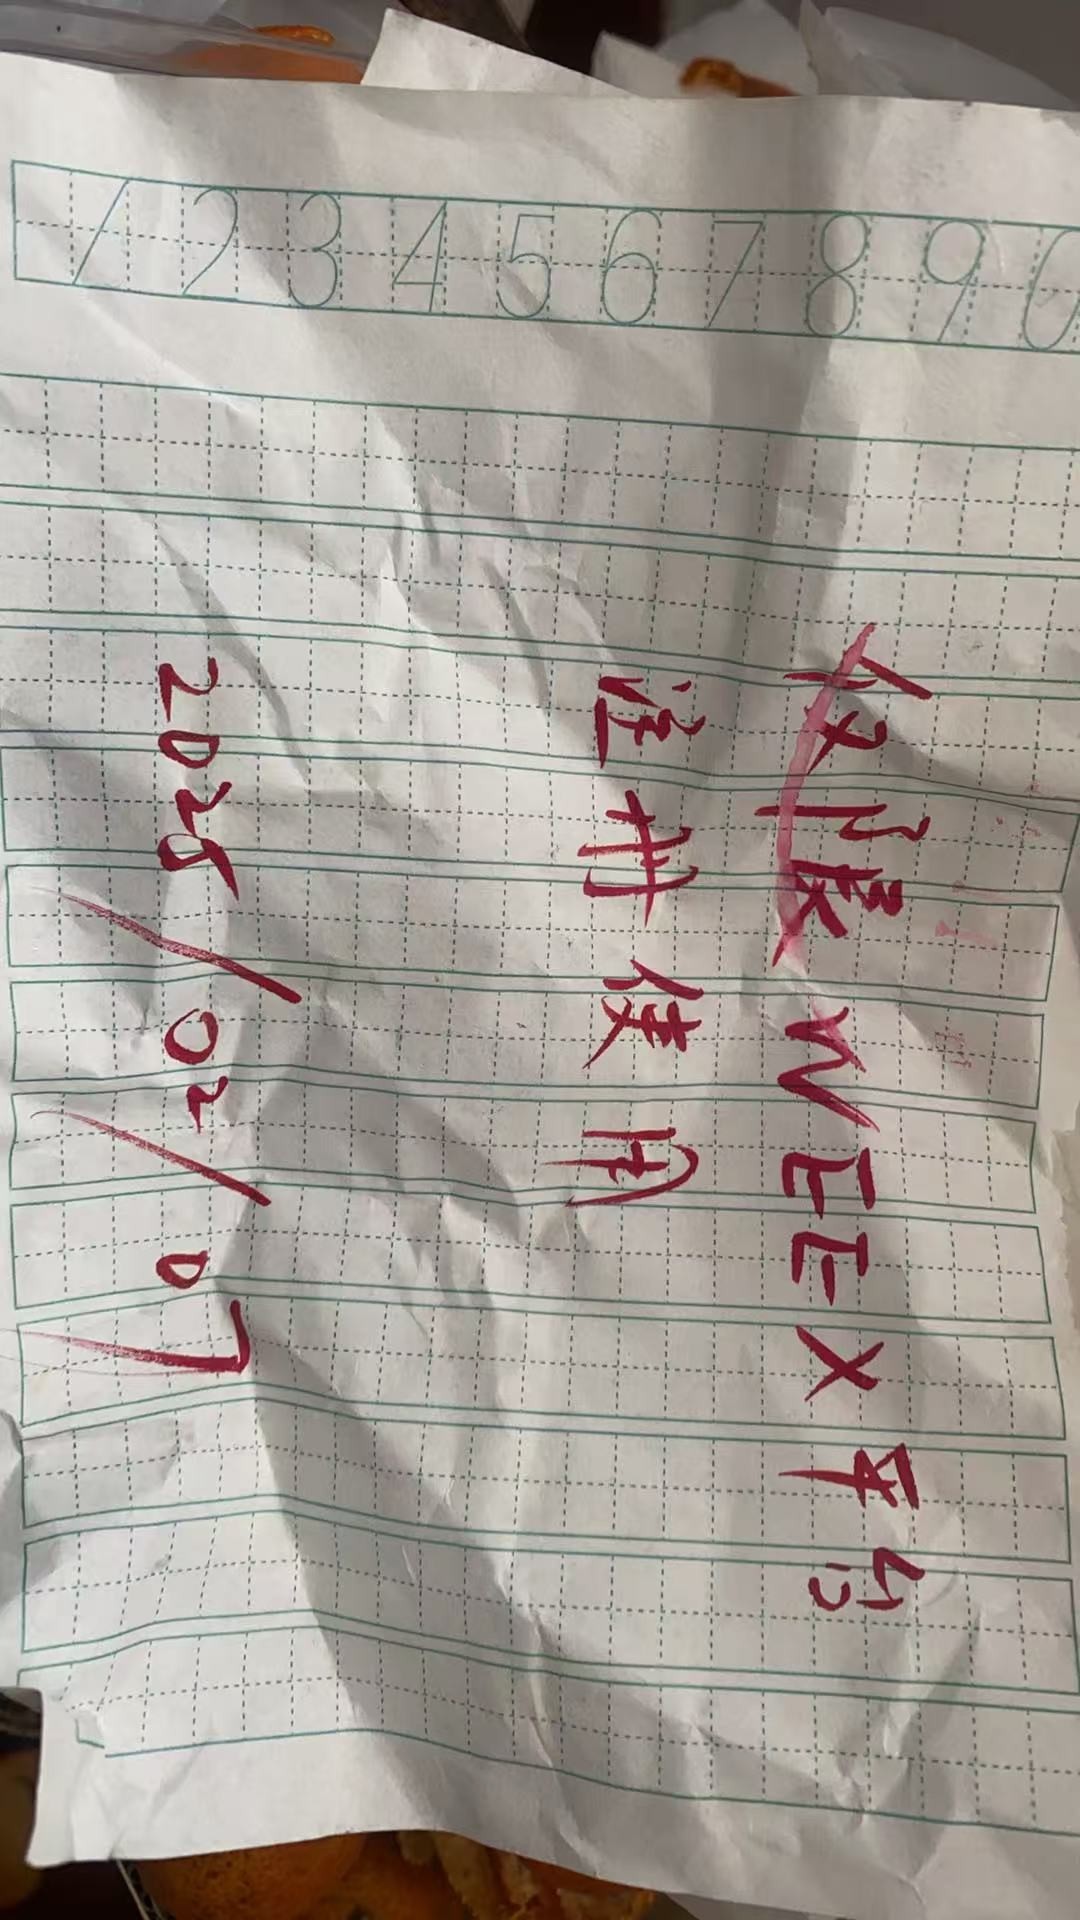 1 2 3 4 5 6 7 8 9 0
仅限WEEX平台
注册使用
2025/02/07